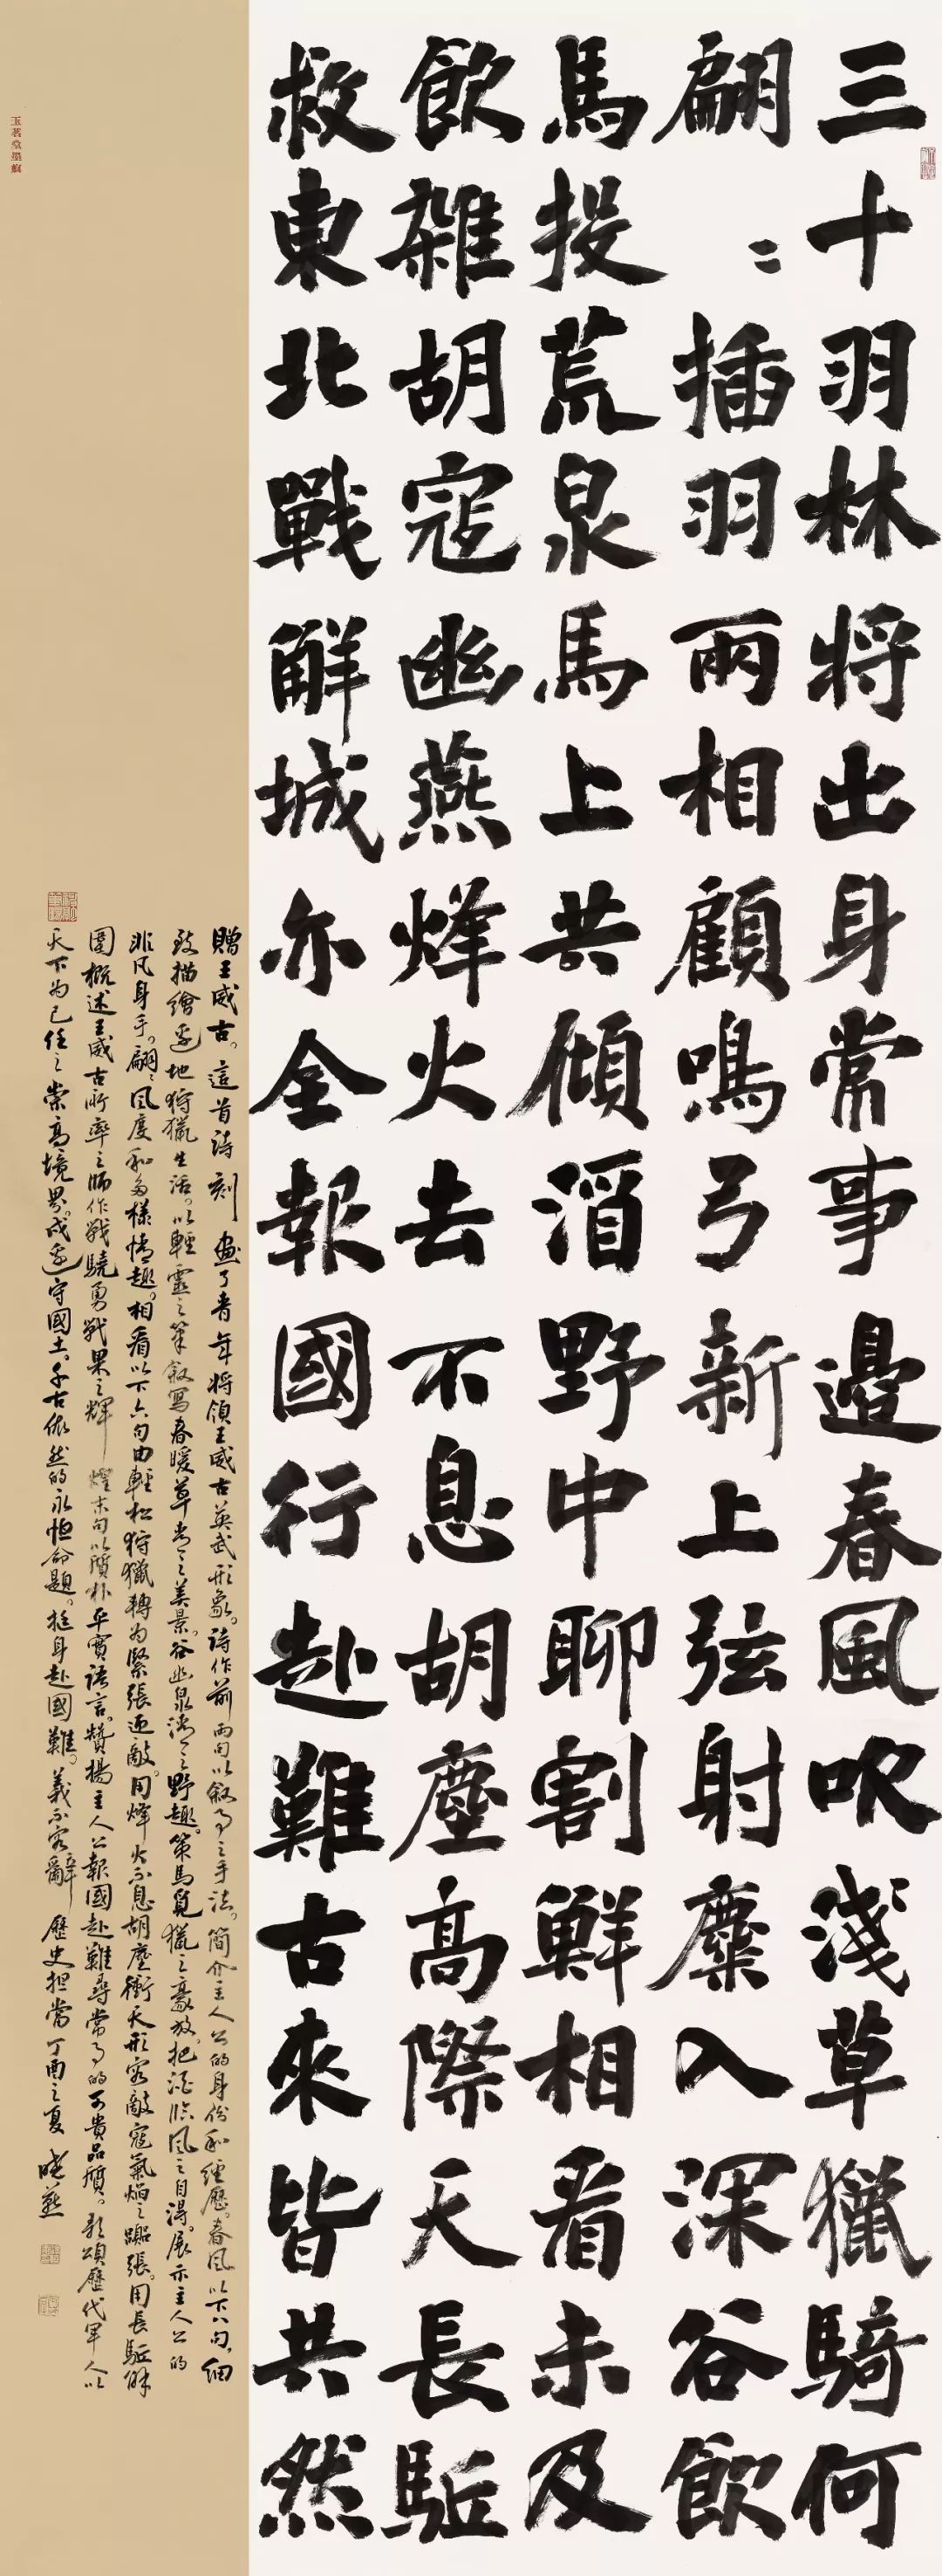 三十羽林将出身常事邊春風吹淺草獵騎何
翩〻插羽兩相顧鳴弓新上弦射麋入深谷飲
馬投荒泉馬上共傾酒野中聊割鮮相看未及
飲雜胡寇幽燕烽火去不息胡塵高際天長駈
救東北戰解城亦全報國行赴難古來皆共然
贈王威古。這首詩刻画了青年将領王威古英武形象。詩作前兩句以叙事之手法。簡介主人公的身份和經歷。春風以下八句,細
致描繪邊地狩獵生活。以輕靈之筆叙寫春暖草青之美景。谷幽泉清之野趣。策馬覓獵之豪放。把酒臨風之自得。展示主人公的
非凡身手。翩〻風度和多樣情趣。相看以下六句由輕松狩獵轉为緊張迎敵。用烽火不息胡塵衝天形容敵寇氣焰之囂張。用長駈解
圍概述王威古所率之師作戰驍勇戰果之輝煌末句以質朴平實語言。贊揚主人公報國赴難尋常事的可貴品質。歌頌歷代軍人以
天下为己任之崇高境界。戍邊守國土。千古依然的永恒命題。挺身赴國難。義不容辭歷史担當丁酉之夏曉燕
玉茗堂墨痕